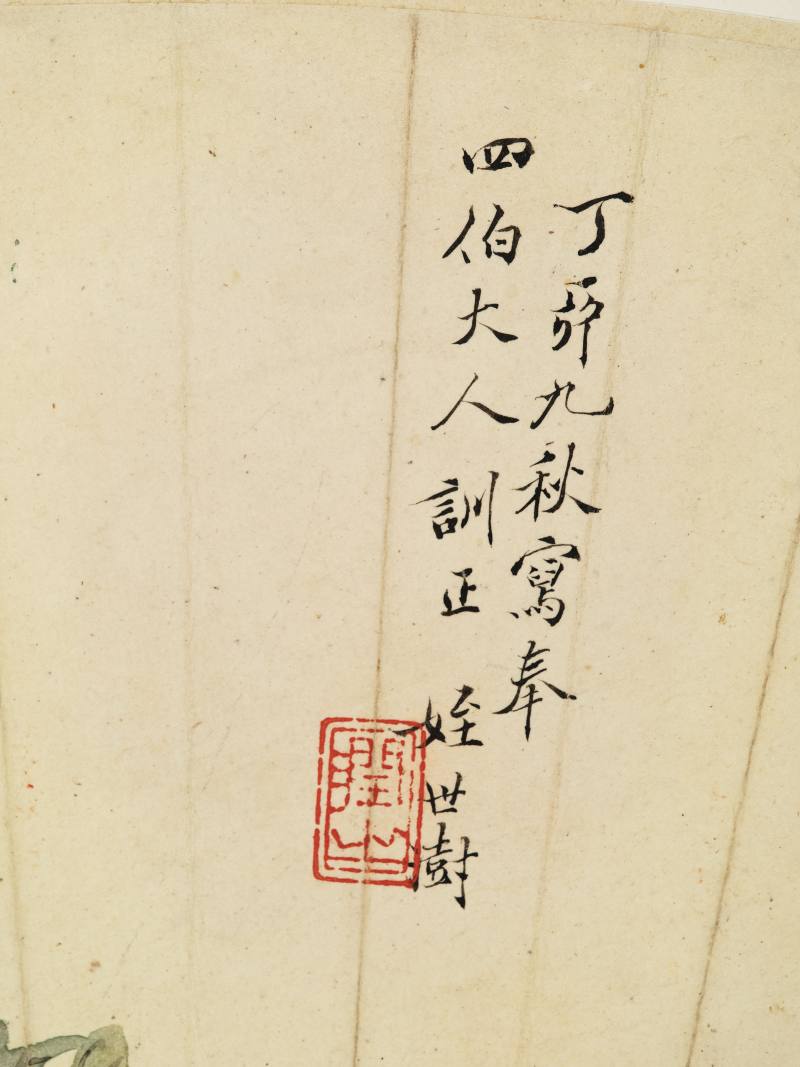 丁丣九秋寫奉
四伯大人訓正 姪世澍